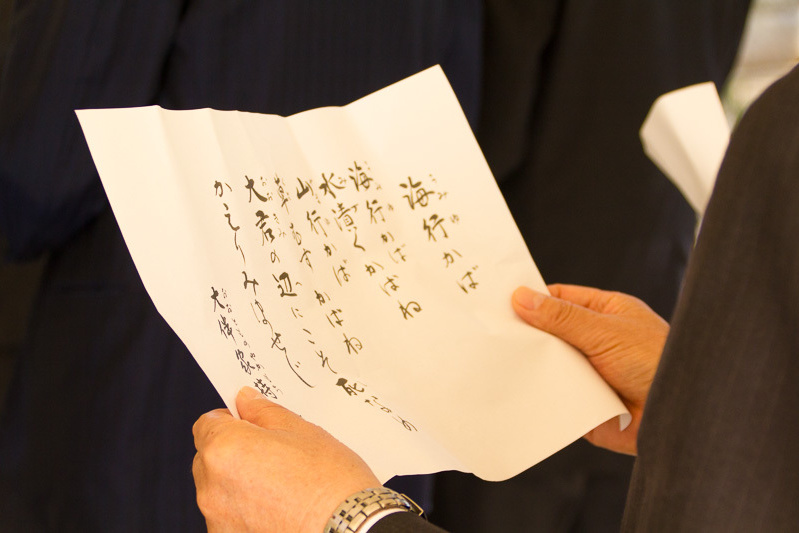 海行かば
海行かば
水漬くかばね
山行かば
草むすかばね
大君の辺にこそ死なめ
かえりみはせじ
大伴家持